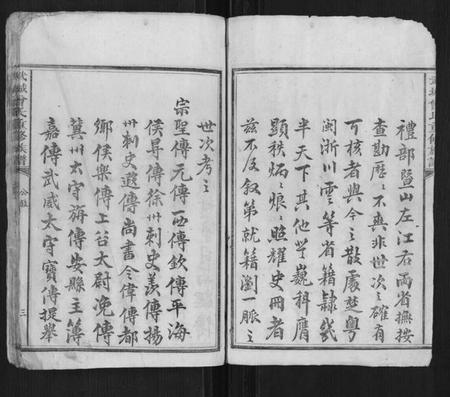 禮部曁山左江右兩省撫按
查勘歷歷不爽非世次之確有
可核者與今之散處楚粵
閩浙川雲之等省籍隸幾
半天下其他學巍科膺
顯秩炳炳烺烺照耀史冊者
茲不及敘第就籍瀏一脈之
世次考之
宗聖傳元傳西傳欽傳平海
侯㝷傳徐州刺史羨傳揚
州刺史遐傳尚書令偉傳都
鄉侯樂傳上谷太尉浼傳
冀州太守旃傳安縣主簿
嘉傳武威太守寶傳提舉
武城曾氏重修族譜
三